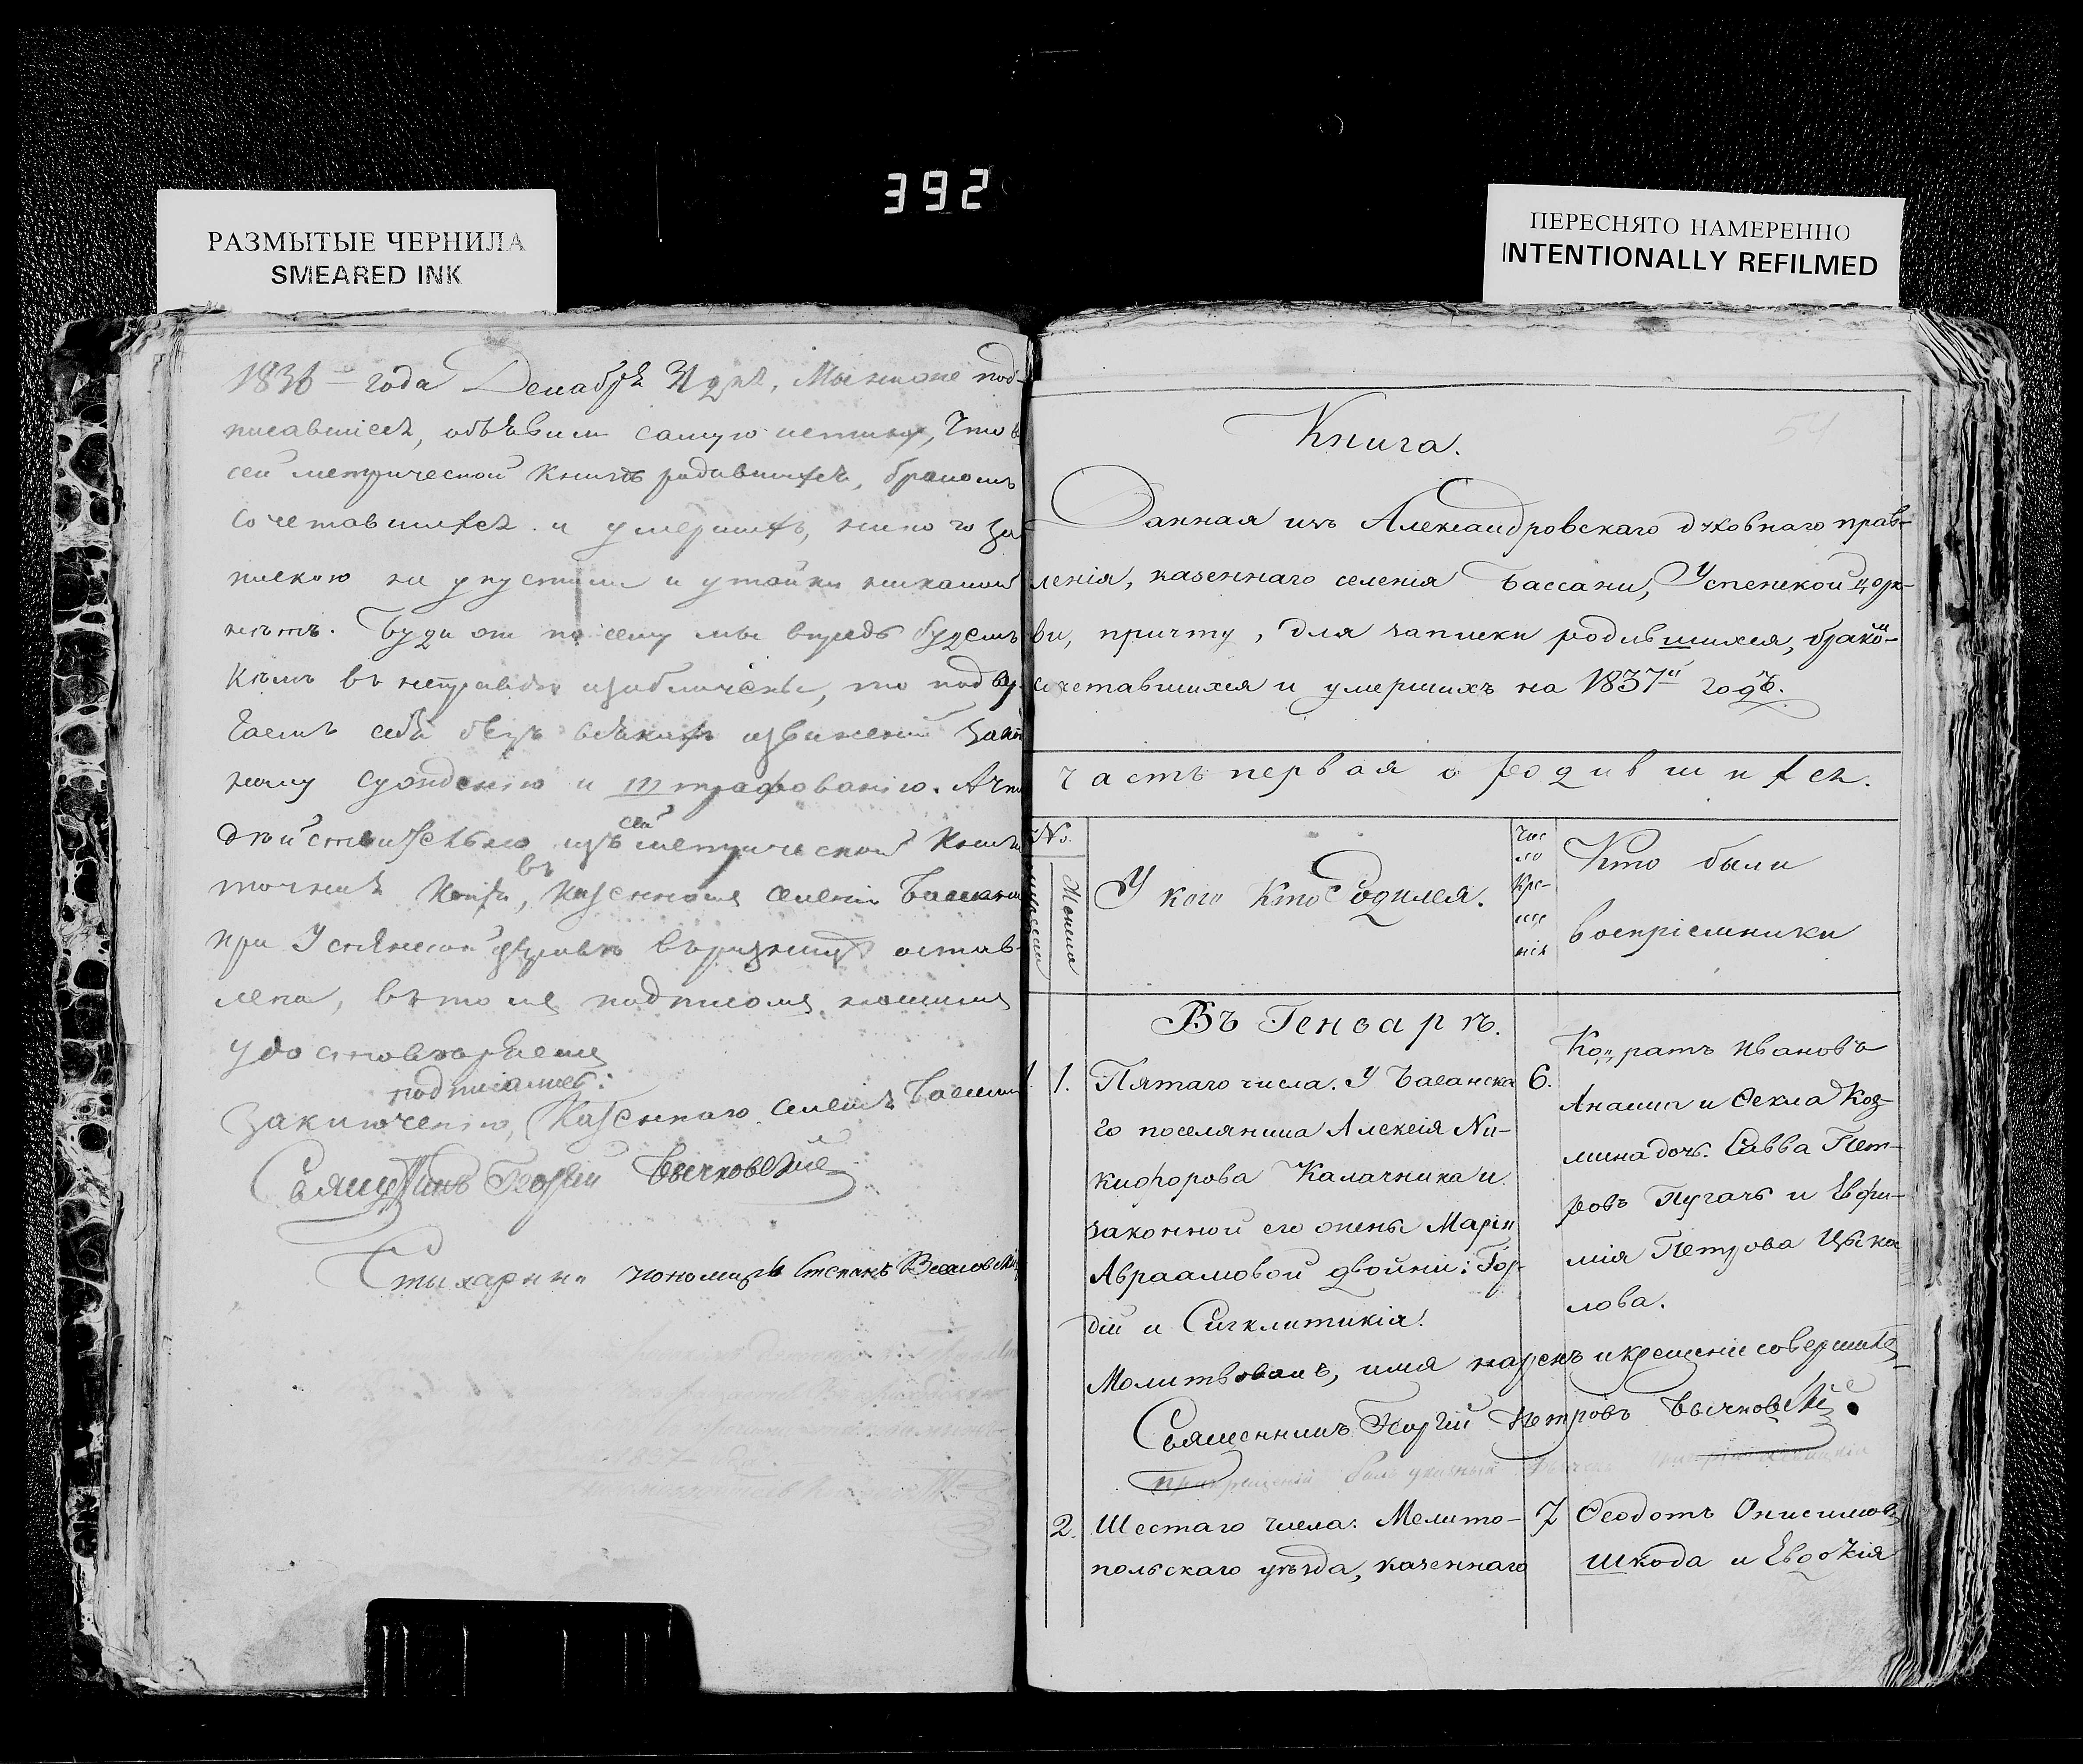 392
РАЗМЫТЫЕ ЧЕРНИЛА
SMEARED INK
ПЕРЕСНЯТО НАМЕРЕННО
INTENTIONALLY REFILMED
1836 года Декабря 31 дня, Мы ниже под-
писавшіеся, объявили самую истину, Что в
сей метрической книгѣ родившихся, бракомъ
сочетавшихся и умершихъ, никого за
пискою не упустили и утайки никакой
нѣтъ. Буди же по сему мы впредь будемъ
кѣмъ въ неправдѣ изобличены, то подвер
гаемъ себя безъ всякихъ извиненій закон
ному сужденію и штрафованію. А что
дѣйствительно изъ сей метрической книги
точная копія, въ казенномъ селеніи Бассани
при Успенской церквѣ въ ризницѣ остав-
лена, въ томъ подписомъ нашимъ
удостовѣряемъ
подписались:
заключенію, Казеннаго селенія Бассани
Священникъ Георгій Бычковскій
Стихарный пономарь Степанъ
54
Книга.
Данная изъ Александровскаго духовнаго прав-
ленія, казеннаго селенія Бассани, Успенской церк-
ви, причту, для записки родившихся, бракомъ-
сочетавшихся и умершихъ на 1837й годъ.
часть первая о родившихся.
№.
мужеска
Женска
У кого Кто Родился.
Чис
ло
Кре-
ще
нія
Кто были
воспріемники
Въ Генваръ.
1. 1. Пятаго числа. У Басанска 6.
го поселянина Алексія Ни-
кифорова Калачника и
законной его жены Маріи
Авраамовой двойни: Гор-
дій и Сигклитикія.
Кондратъ Ивановъ
Ананич и Фекла Коз-
мина дочь. Савва Пет-
ровъ Пугачъ и Евфи-
мія Петрова Цыка
лова.
Молитвовалъ, имя нарекъ и крещеніе совершилъ
Священникъ Георгій Петровъ Бычковскій.
При крещеніи былъ указный
2. Шестаго числа. Мелито- 7
польскаго уѣзда, казеннаго
Феодотъ Онисимовъ
Шкода и Евдокія